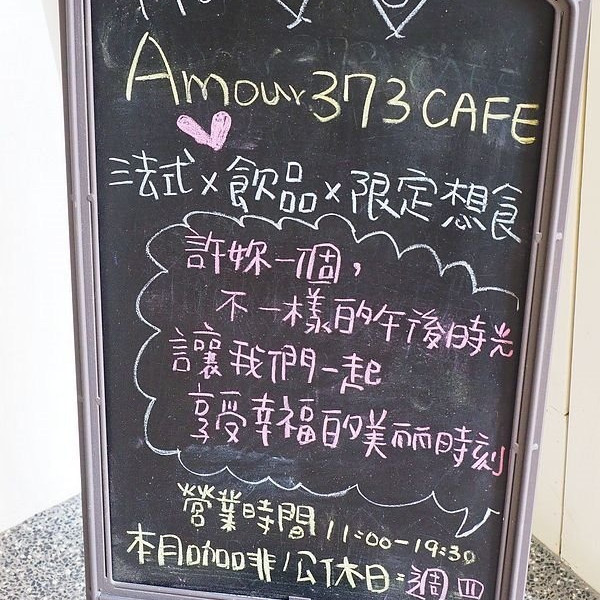 Amour 373 CAFE
法式 x 飲品 x 限定想食
許妳一個，
不一樣的午後時光
讓我們一起
享受幸福的美麗時刻
營業時間 11:00-19:30
本月咖啡/公休日:週四